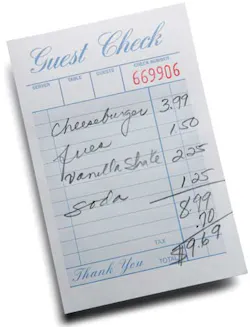 Guest Check
SERVER TABLE GUESTS CHECK NUMBER
669906
Cheeseburger 3.99
Fries 1.50
Vanilla Shake 2.25
Soda 1.25
8.99
.70
TAX
Thank You TOTAL $9.69